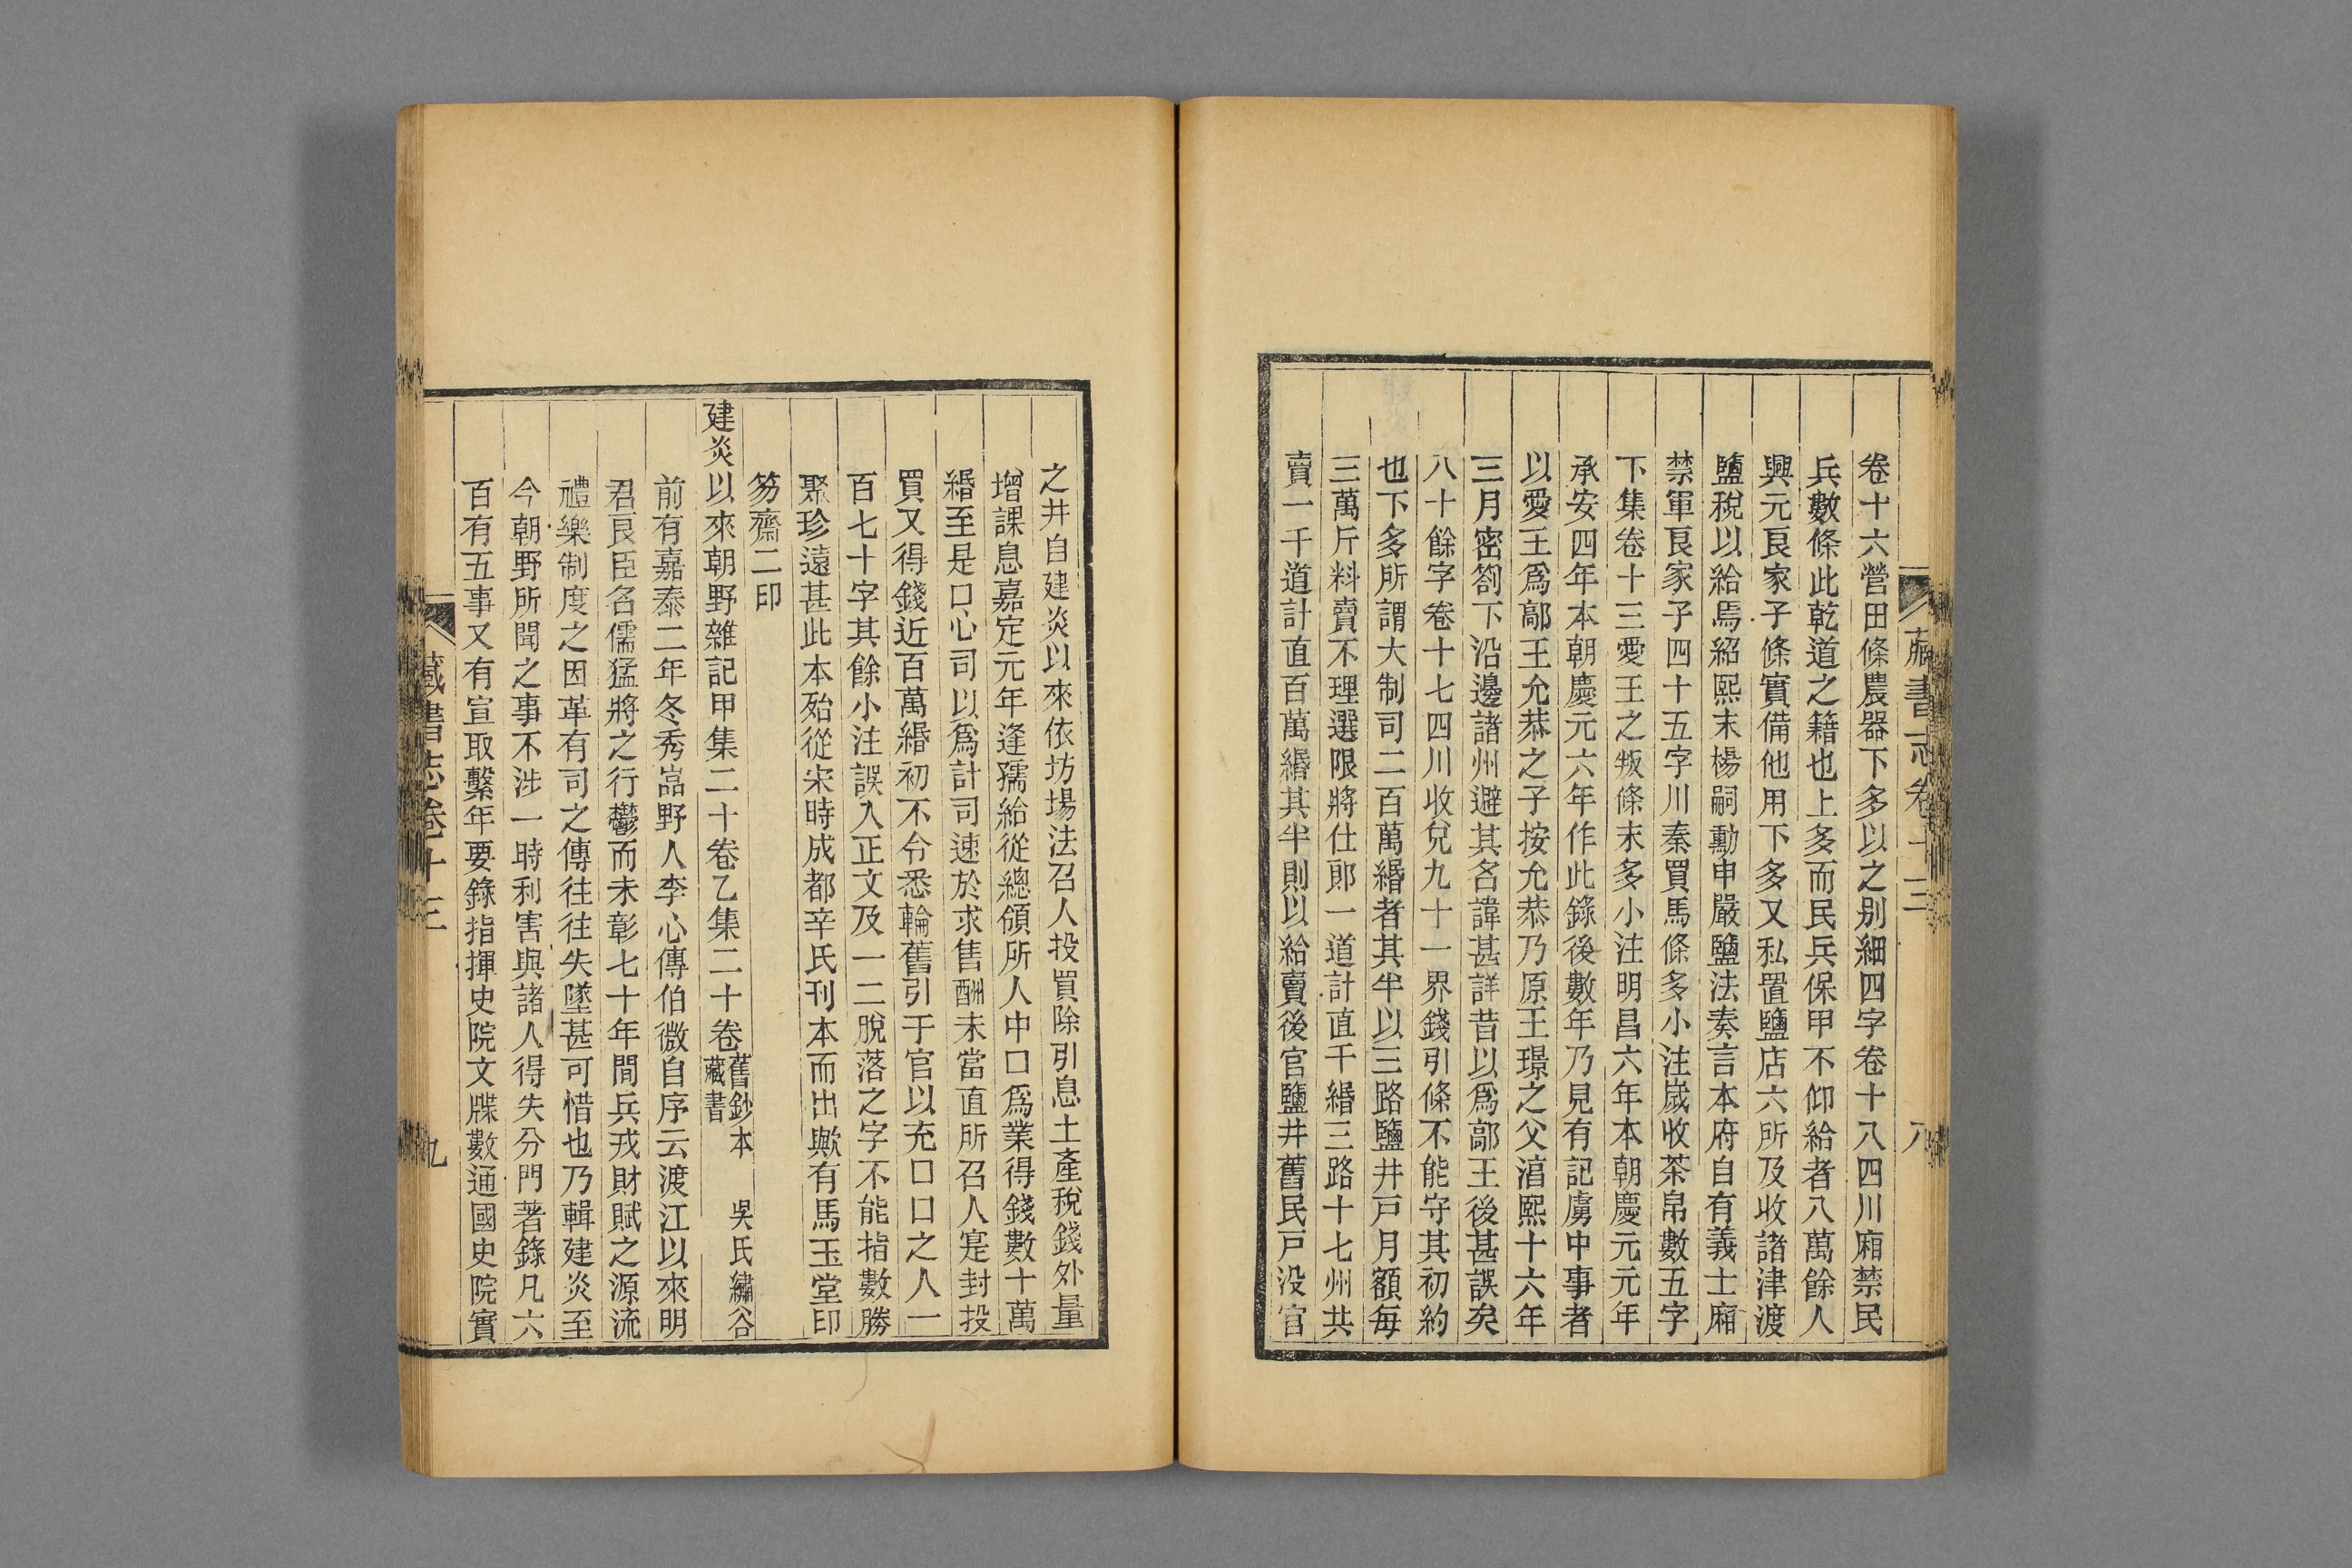 藏書志卷十三
八
卷十六營田條農器下多以之别細四字卷十八四川廂禁民
兵數條此乾道之籍也上多而民兵保甲不仰給者八萬餘人
興元良家子條實備他用下多又私置鹽店六所及收諸津渡
鹽稅以給焉紹熙末楊嗣勳申嚴鹽法奏言本府自有義士廂
禁軍良家子四十五字川秦買馬條多小注歲收茶帛數五字
下集卷十三愛王之叛條末多小注明昌六年本朝慶元元年
承安四年本朝慶元六年作此錄後數年乃見有記虜中事者
以愛王爲鄗王允恭之子按允恭乃原王璟之父淯熙十六年
三月密劄下沿邊諸州避其名諱甚詳昔以爲鄗王後甚誤矣
八十餘字卷十七四川收兌九十一界錢引條不能守其初約
也下多所謂大制司二百萬緡者其半以三路鹽井戸月額每
三萬斤料賣不理選限將仕郎一道計直千緡三路十七州共
賣一千道計直百萬緡其半則以給賣後官鹽井舊民戸没官
之井自建炎以來依坊場法召人投買除引息土產稅錢外量
增課息嘉定元年逢孺給從總領所人中口爲業得錢數十萬
緡至是口心司以爲計司速於求售酬未當直所召人寔封投
買又得錢近百萬緡初不令悉輪舊引于官以充口口之人一
百七十字其餘小注誤入正文及一二脫落之字不能指數勝
聚珍遠甚此本殆從宋時成都辛氏刊本而出歟有馬玉堂印
笏齋二印
建炎以來朝野雜記甲集二十卷乙集二十卷舊鈔本 吳氏繡谷藏書
前有嘉泰二年冬秀嵓野人李心傳伯微自序云渡江以來明
君良臣名儒猛將之行鬱而未彰七十年間兵戎財賦之源流
禮樂制度之因革有司之傳往往失墜甚可惜也乃輯建炎至
今朝野所聞之事不涉一時利害與諸人得失分門著錄凡六
百有五事又有宣取繫年要錄指揮史院文牒數通國史院實
藏書志卷十三
九